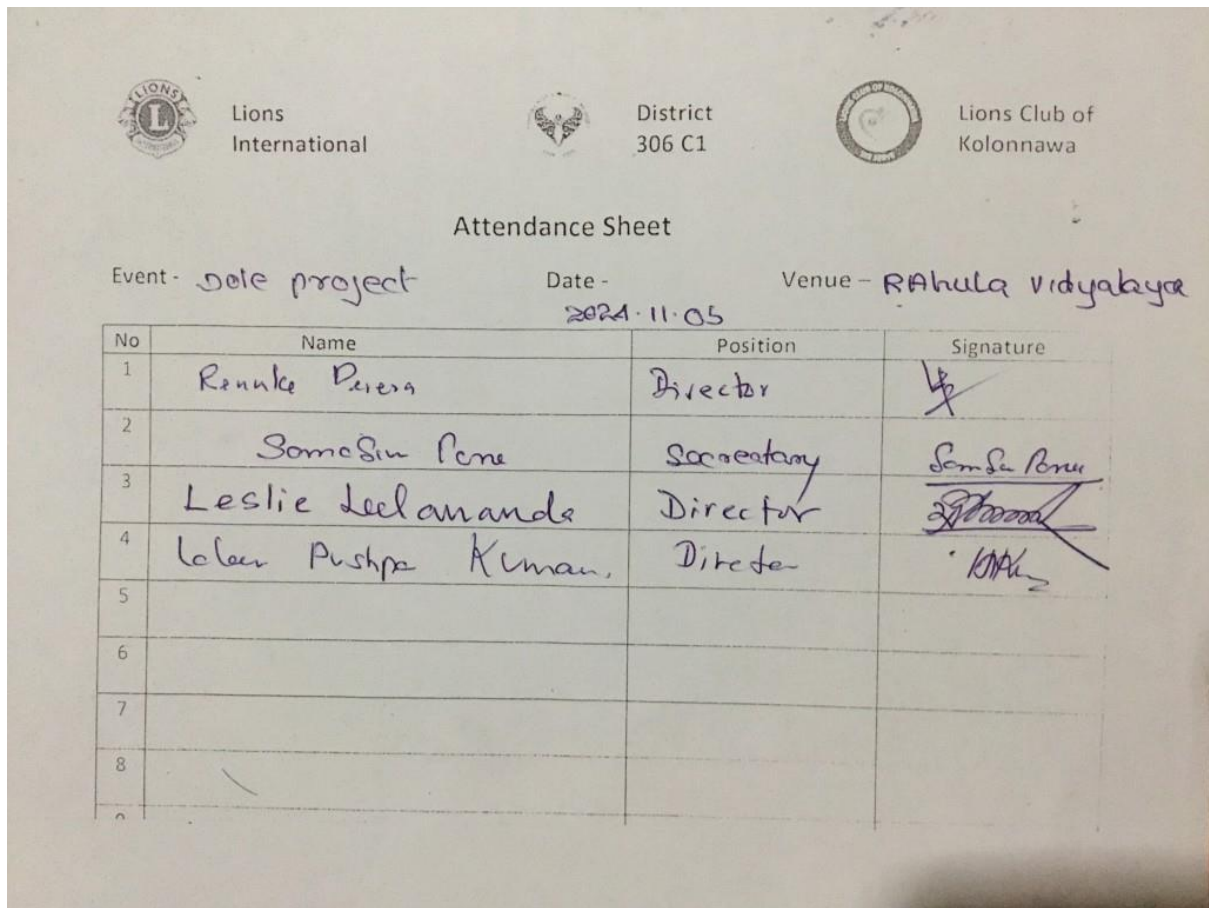 LIONS
L
Lions International
District 306 C1
Lions Club of Kolonnawa
Attendance Sheet
Event - Dole project Date - 2024.11.05 Venue - RAhula vidyalaya
No Name Position Signature
1 Renuke Perera Director
2 Socreatary
3 Leslie Leelananda Director
4 Pushpa Kumara,
5
6
7
8